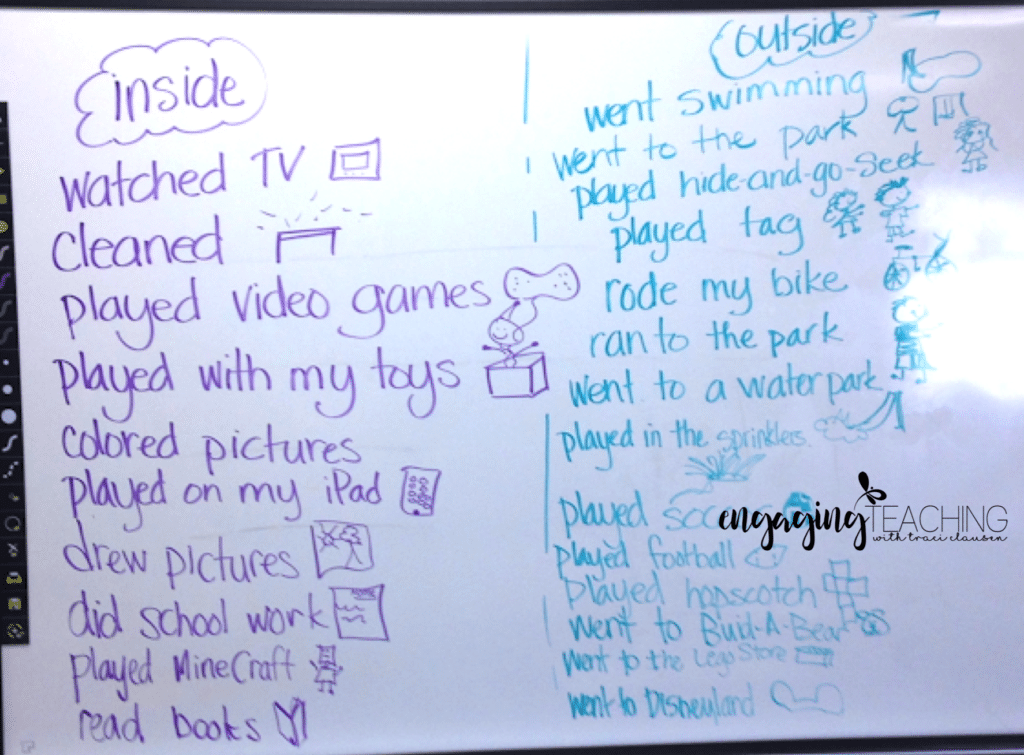 inside
watched TV
cleaned
played video games
played with my toys
colored pictures
played on my iPad
drew pictures
did school work
played MineCraft
read books
outside
went swimming
went to the park
played hide-and-go-seek
played tag
rode my bike
ran to the park
went to a water park
played in the sprinklers.
played
played football
played hopscotch
went to Buid-A-Bear
went to the Lego Store
went to Disneyland
engaging TEACHING
with traci clausen